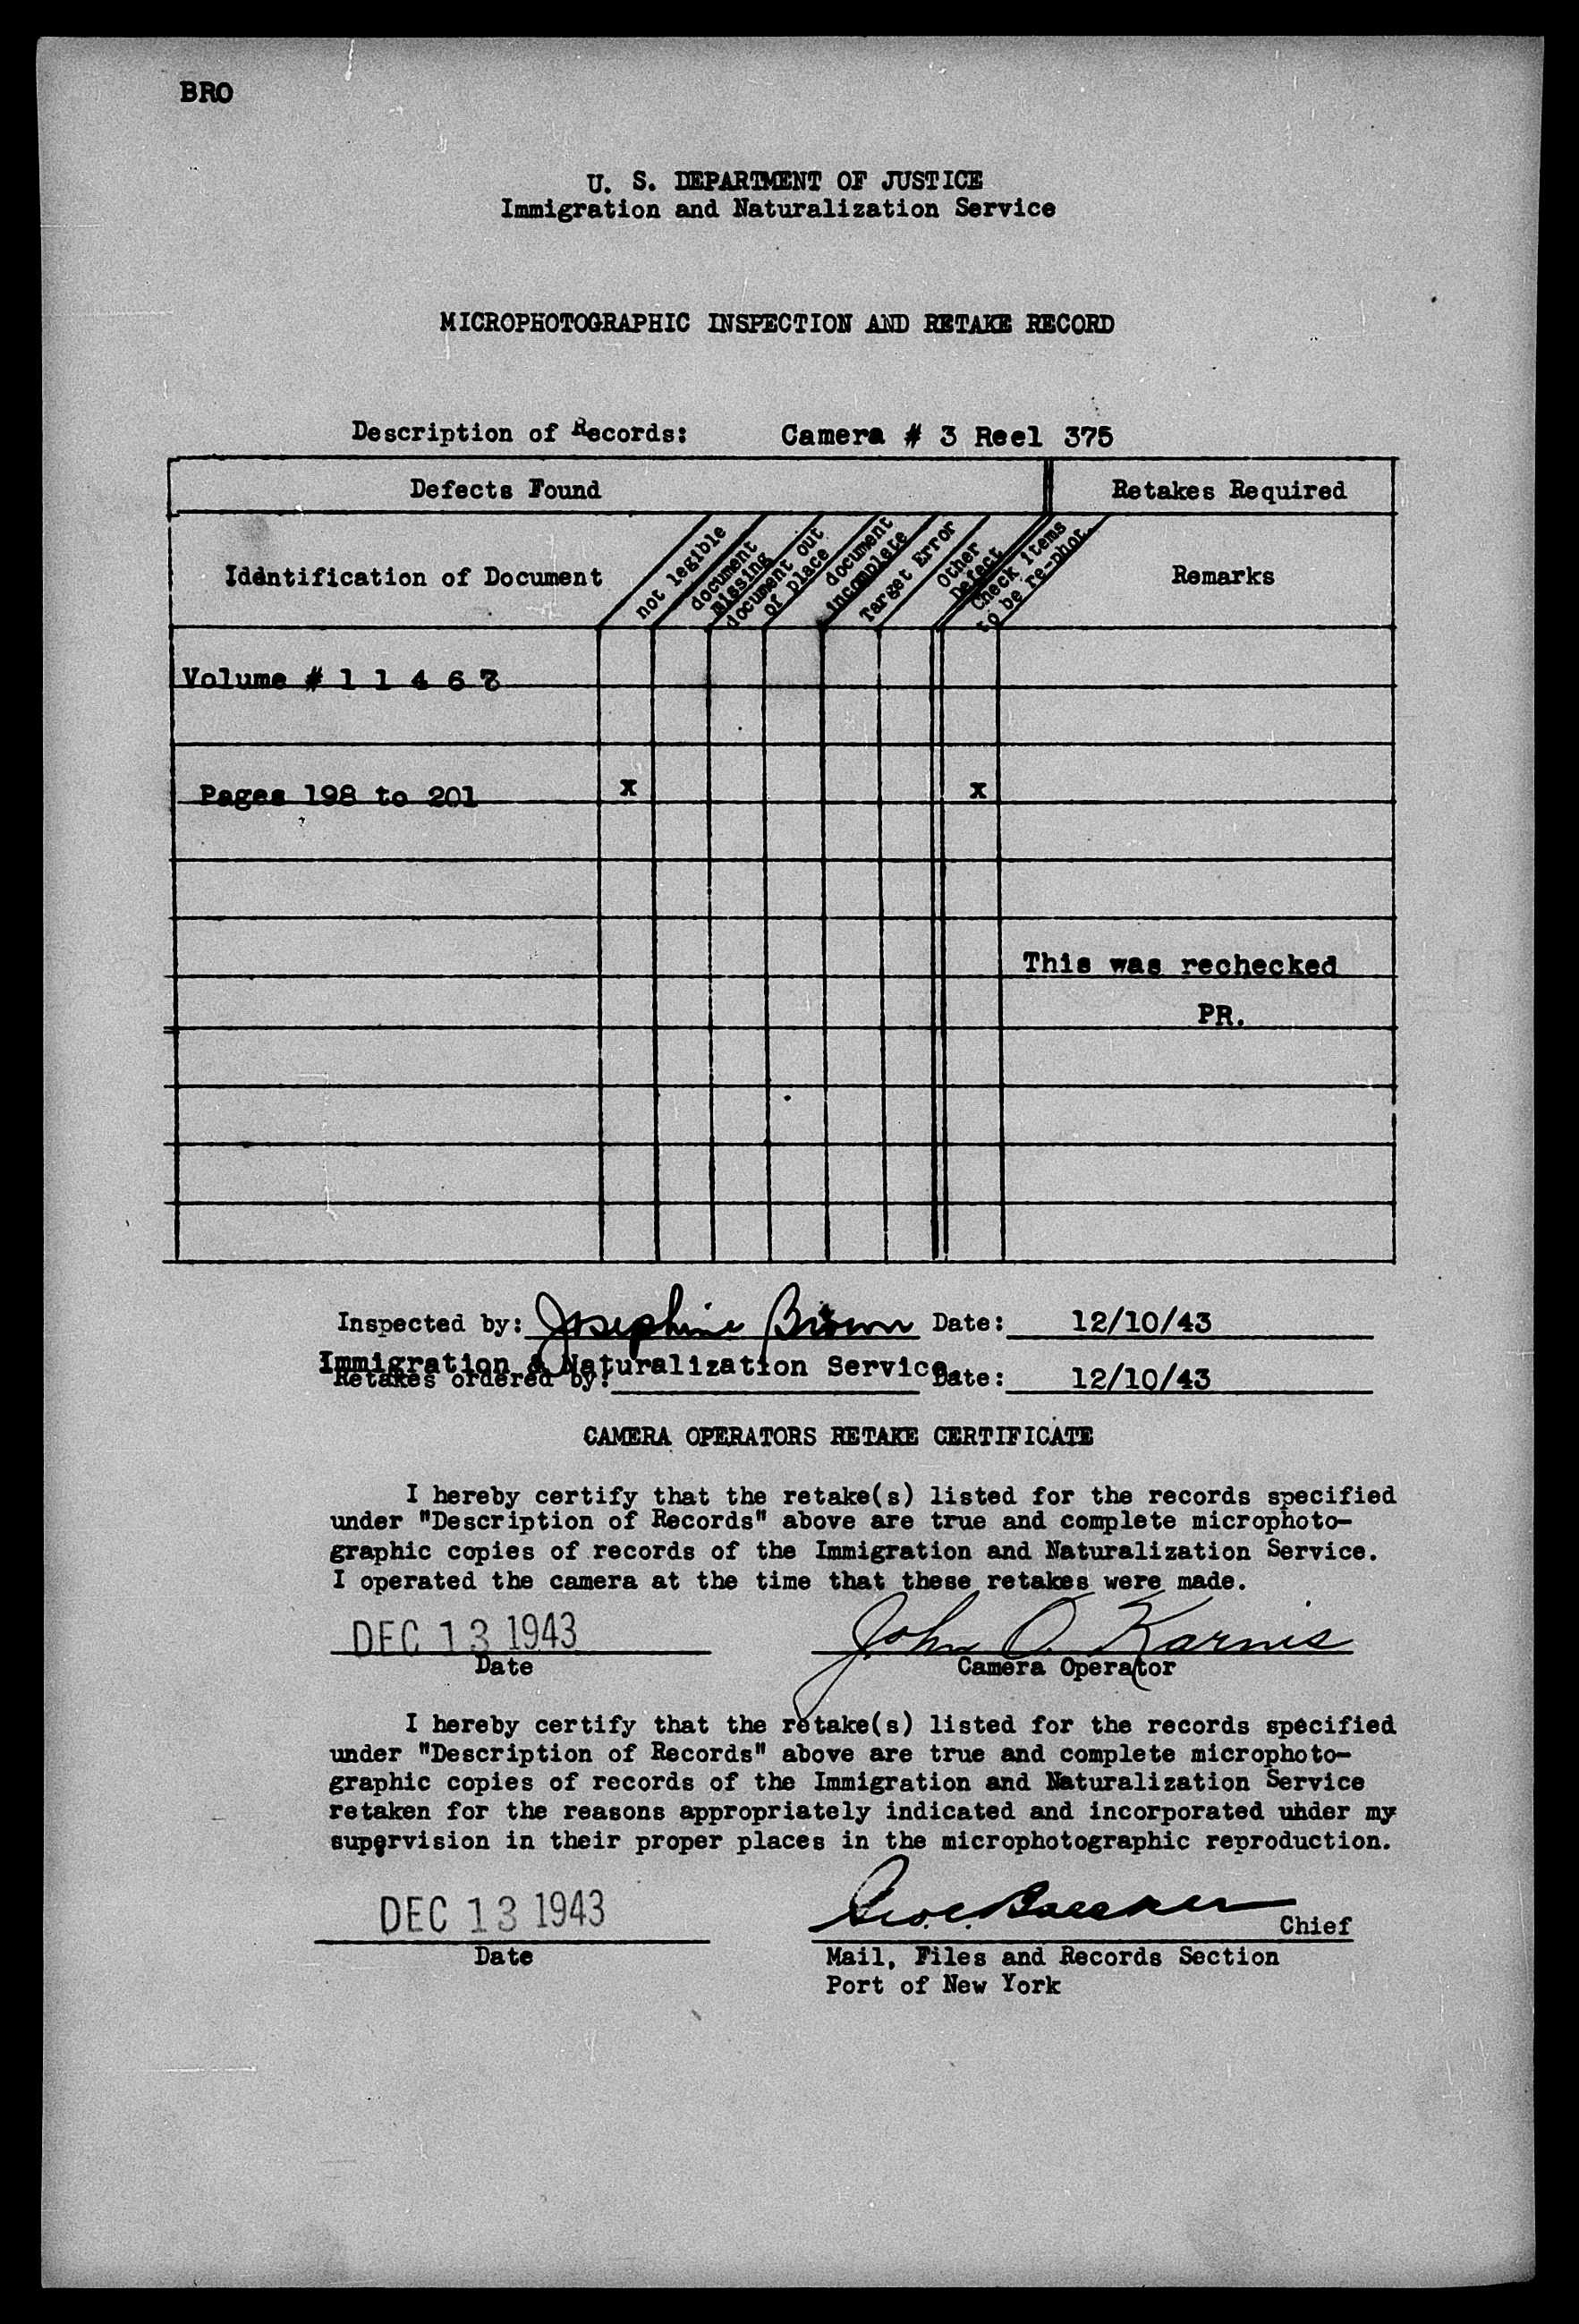 BRO
U. S. DEPARTMENT OF JUSTICE
Immigration and Naturalization Service
MICROPHOTOGRAPHIC INSPECTION AND RETAKE RECORD
Description of Records: Camera # 3 Reel 375
Defects Found Retakes Required
Identification of Document
not legible
document missing
document out of place
document incomplete
Target Error
Other Defect
Check items to be re-phot.
Remarks
Volume # 1 1 4 6
Pages 198 to 201 x x
This was rechecked
PR.
Inspected by: Josephine Brown Date: 12/10/43
Immigration & Naturalization Service
Retakes ordered by: Date: 12/10/43
CAMERA OPERATORS RETAKE CERTIFICATE
I hereby certify that the retake(s) listed for the records specified
under "Description of Records" above are true and complete microphoto-
graphic copies of records of the Immigration and Naturalization Service.
I operated the camera at the time that these retakes were made.
DEC 13 1943 John O. Karnis
Date Camera Operator
I hereby certify that the retake(s) listed for the records specified
under "Description of Records" above are true and complete microphoto-
graphic copies of records of the Immigration and Naturalization Service
retaken for the reasons appropriately indicated and incorporated uhder my
supervision in their proper places in the microphotographic reproduction.
DEC 13 1943 Chief
Date Mail, Files and Records Section
Port of New York